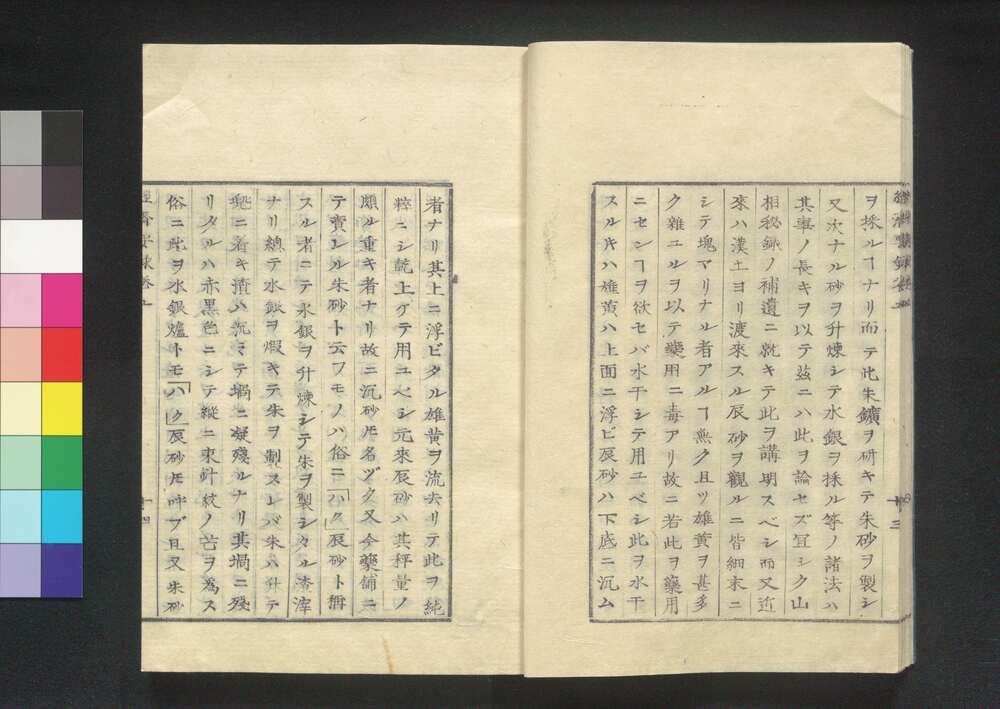 ヲ採ルヿナリ而テ此朱鑛ヲ研キテ朱砂ヲ製シ
又次ナル砂ヲ升煉シテ水銀ヲ採ル等ノ諸法ハ
其事ノ長キヲ以テ茲ニハ此ヲ論セズ冝シク山
相秘録ノ補遺ニ就キテ此ヲ講明スベシ而又近
來ハ漢土ヨリ渡來スル辰砂ヲ觀ルニ皆細末ニ
シテ塊マリナル者アルヿ無ク且ツ雄黄ヲ甚多
ク雜ユルヲ以テ藥用ニ毒アリ故ニ若此ヲ藥用
ニセンヿヲ欲セバ水干シテ用ユベシ此ヲ水干
スルキハ雄黄ハ上面ニ浮ビ辰砂ハ下底ニ沉ム
十三
者ナリ其上ニ浮ビタル雄黄ヲ流去リテ此ヲ純
粹ニシ乾上ゲテ用ユベシ元來辰砂ハ其秤量ノ
頗ル重キ者ナリ故ニ沉砂𪜈名ヅク又今藥舗ニ
テ賣レル朱砂ト云フモノハ俗ニ「ハク」辰砂ト稱
スル者ニテ水銀ヲ升煉シテ朱ヲ製シタル渣滓
ナリ總テ水銀ヲ煆キテ朱ヲ製スレバ朱ハ升テ
ニ着キ漬ハ沉ミテ堝ニ凝殘ルナリ其堝ニ殘
リタルハ赤黒色ニシテ縱ニ束針紋ノ芒ヲ爲ス
俗ニ此ヲ水銀爐トモ「ハク」辰砂𪜈呼ブ且又朱砂
十四